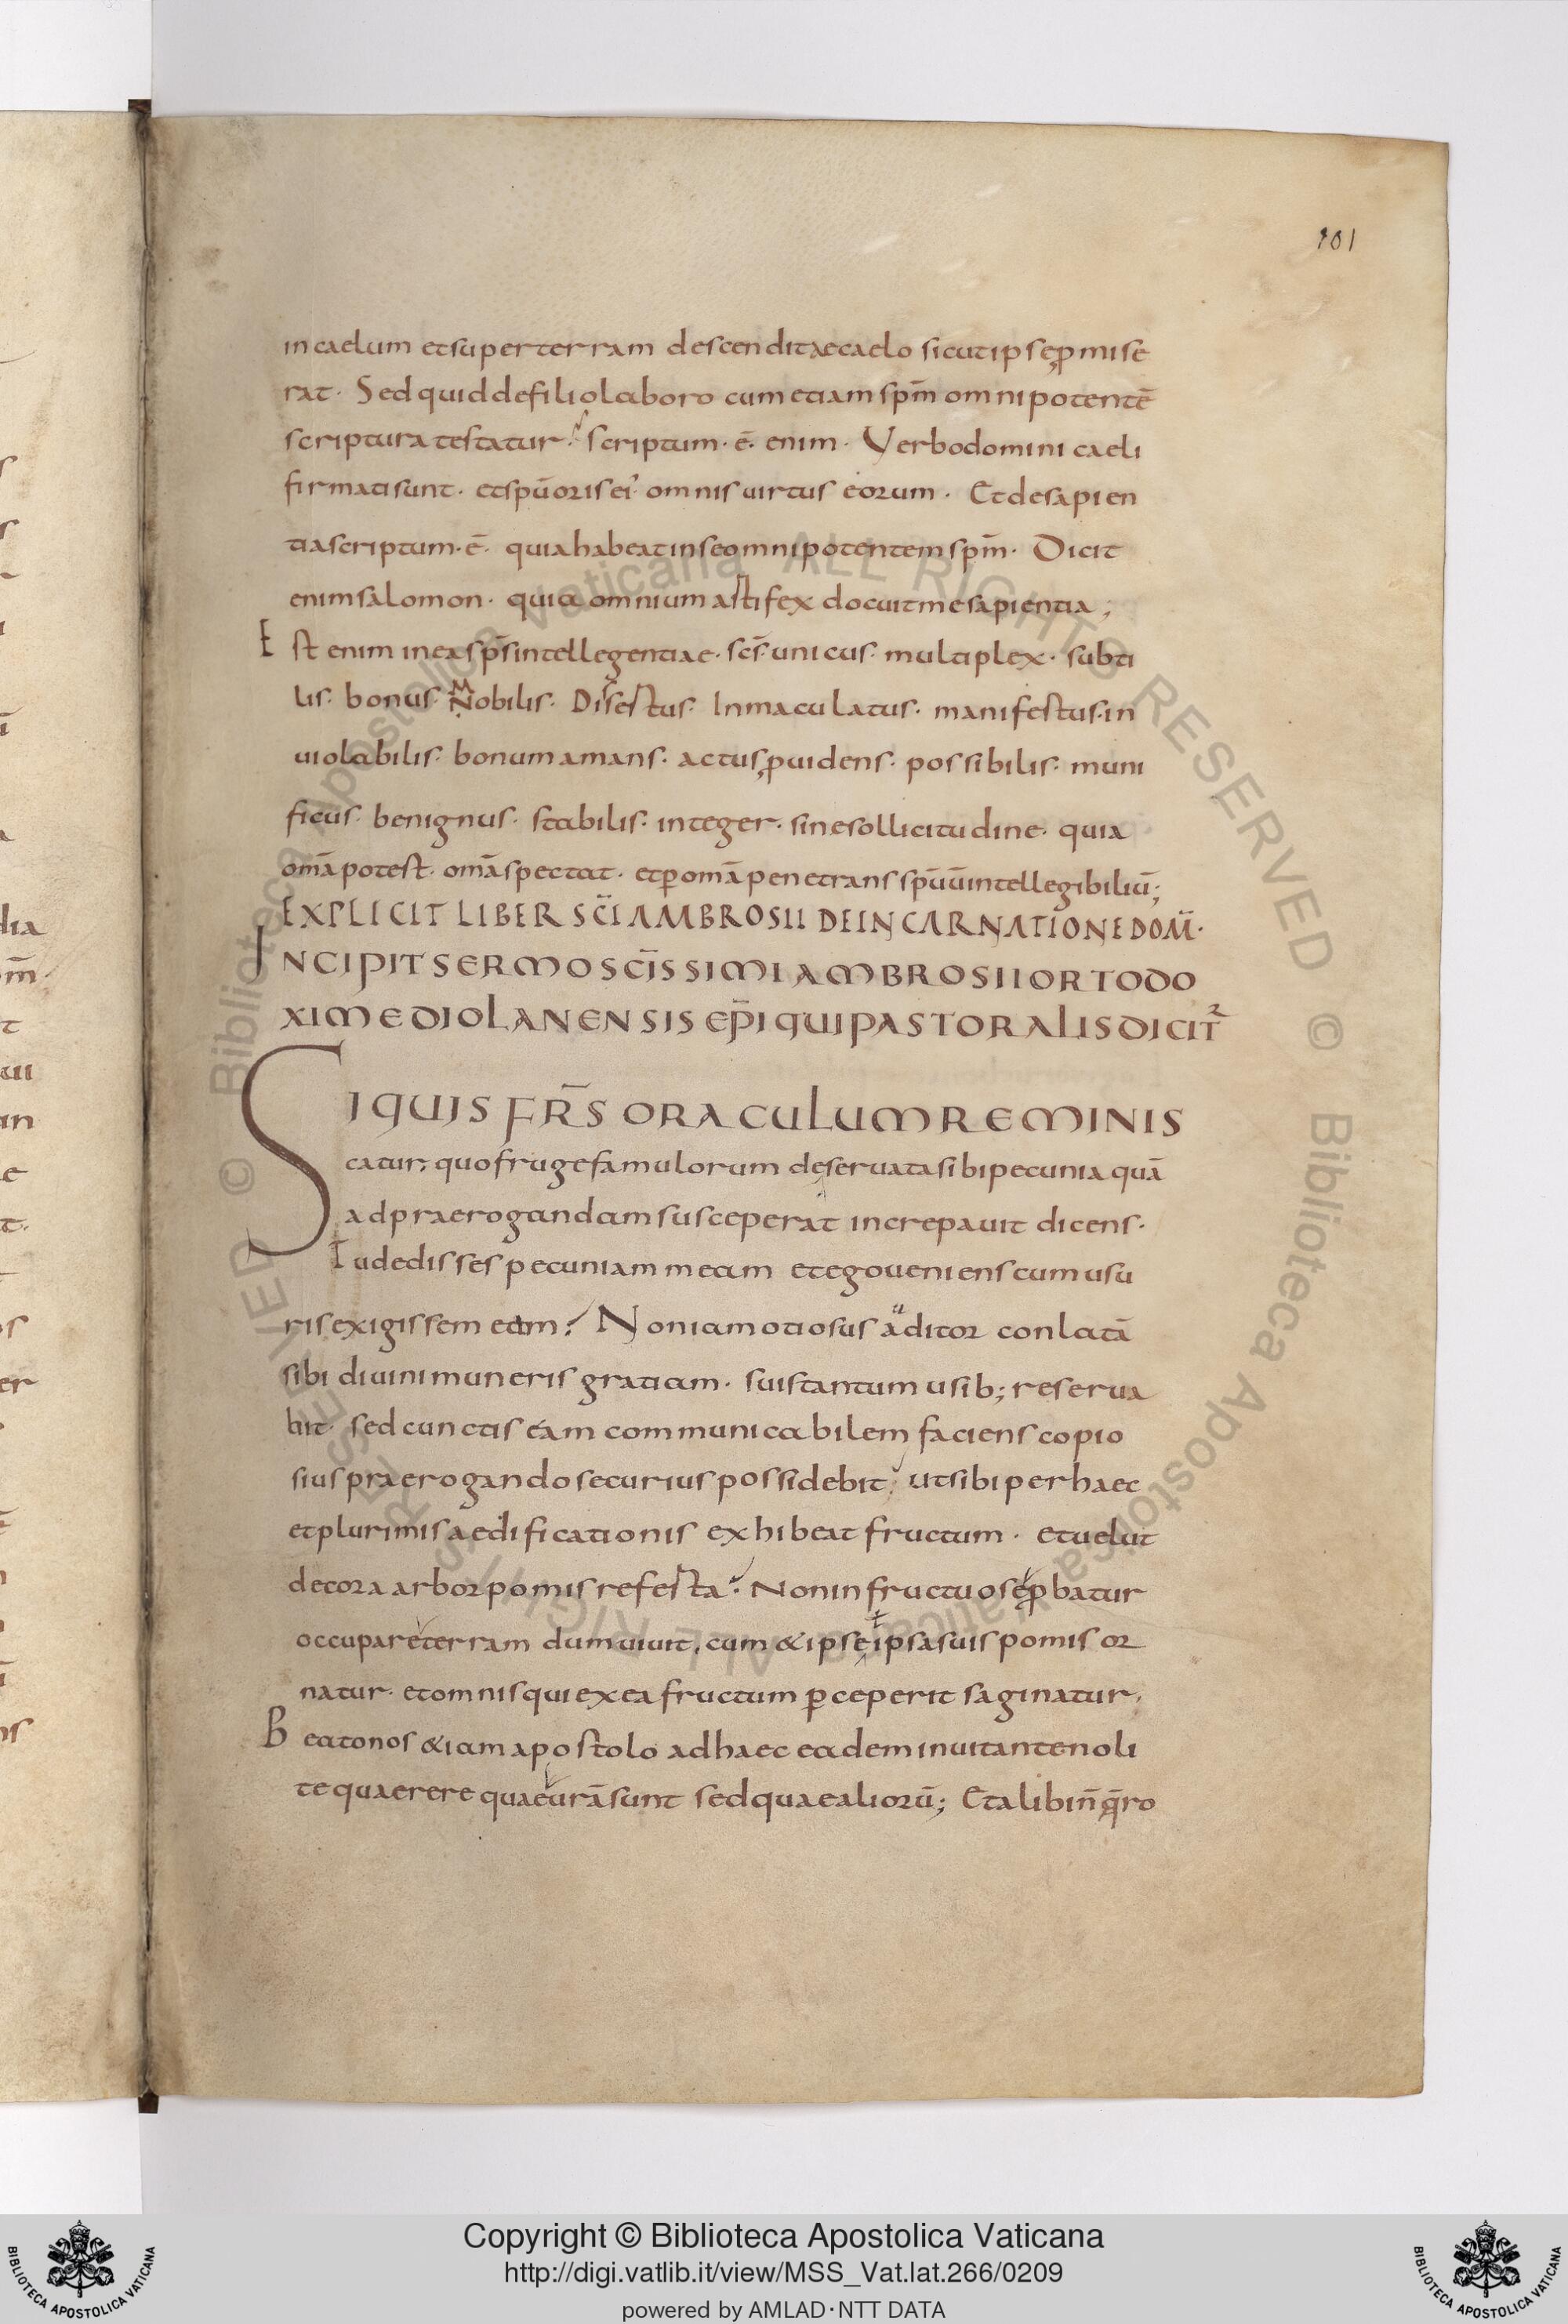 101
in caelum et super terram descendit ae caelo sicut ipse ꝓmise
rat· Sed quid de filio laboro cum etiam spm̄ omnipotentē
scriptura testatur? scriptum· ē· enim· Verbo domini caeli
firmati sunt· et spū oris ei' omnis uirtus eorum· Et de sapien
tia scriptum· ē· quia habeat in se omnipotentem spm̄· Dicit
enim salomon· quia omnium astifex docuit me sapientia;
Est enim in ea sps̄ intellegentiae· scs̄· unicus· multiplex· subti
lis· bonus· Nobilis· Disestus· Inmaculatus· manifestus· in
uiolabilis· bonum amans· actus, ꝓuidens· possibilis· muni
ficus· benignus· stabilis· integer· sine sollicitudine· quia
omā potest· omā spectat· et ꝑ omā penetrans spūū intellegibiliū;
EXPLICIT LIBER SC̄I AMBROSII DE INCARNATIONE DOM̄·
INCIPIT SERMO SC̄ISSIMI AMBROSII ORTODO
XI MEDIOLANENSIS EP̄I QUI PASTORALIS DICIT
SI QUIS FR̄S ORACULUM REMINIS
catur, quo fruge famulorum deseruata sibi pecunia quā
ad praerogandam susceperat increpauit dicens·
Tu dedisses pecuniam meam et ego ueniens cum usu
ris exigissem eam? Non iam otiosus auditor conlatā
sibi diuini muneris gratiam· suis tantum usib; reserua
bit· sed cunctis eam communicabilem faciens copio
sius praerogando securius possidebit· ut sibi per haec
et plurimis aedificationis exhibeat fructum· et uelut
decora arbor pomis refesta· Non infructuose ꝓbatur
occupare terram dum uiuit, cum & ipse ipsa suis pomis or
natur· et omnis qui ex ea fructum ꝑceperit saginatur,
Beato nos &iam apostolo ad haec eadem inuitante noli
te quaerere quae urā sunt sed quae aliorū; Et alibi n̄ q̄ro
Copyright © Biblioteca Apostolica Vaticana
http://digi.vatlib.it/view/MSS_Vat.lat.266/0209
powered by AMLAD·NTT DATA